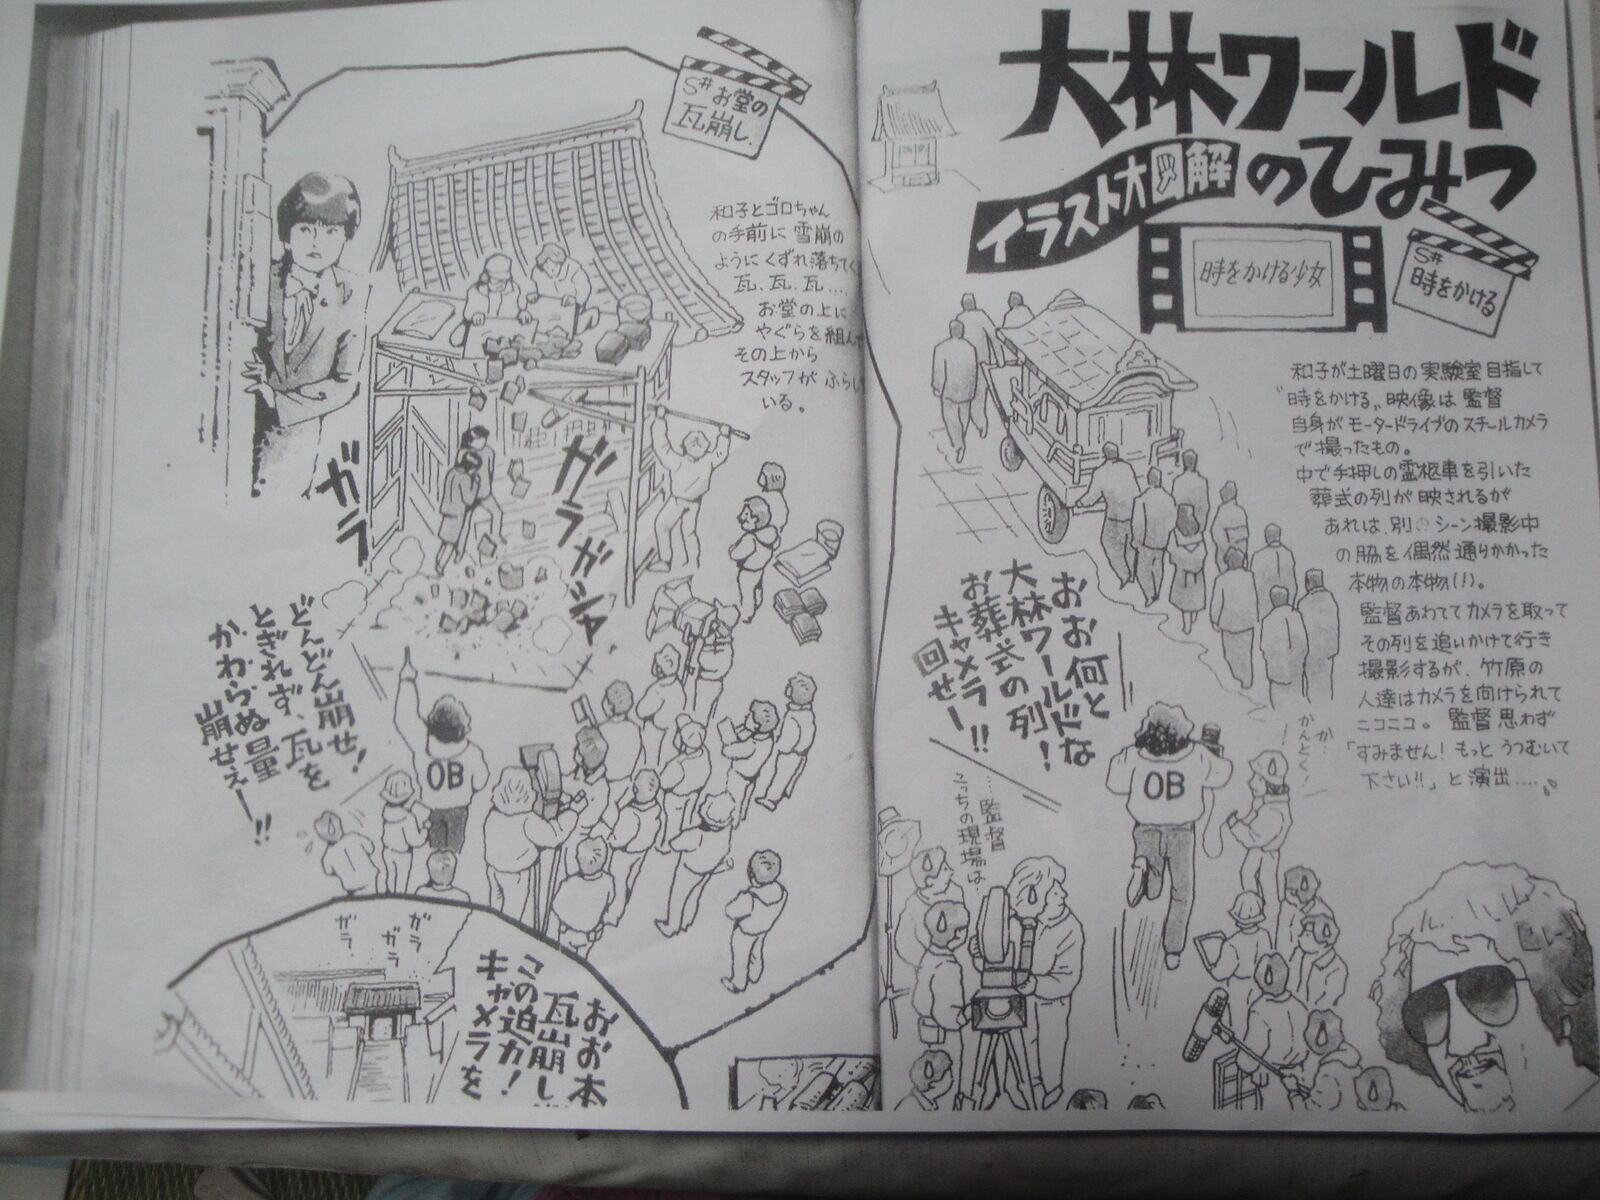 大林ワールド
のひみつ
イラスト大図解
時をかける少女
S#
時をかける
和子が土曜日の実験室目指して
"時をかける"映像は監督
自身がモータードライブのスチールカメラ
で撮ったもの。
中で手押しの霊柩車を引いた
葬式の列が映されるが
あれは、別のシーン撮影中
の脇を偶然通りかかった
本物の本物(!)。
監督あわててカメラを取って
その列を追いかけて行き
撮影するが、竹原の
人達はカメラを向けられて
ニコニコ。監督思わず
「すみません!もっとうつむいて
下さい!!」と演出……
おお何と
大林ワールドな
お葬式の列!
キャメラ
回せー!!
か…
かんとく!
OB
……監督
こっちの現場は…
S#お堂の
瓦崩し.
和子とゴロちゃん
の手前に雪崩の
ようにくずれ落ちてく
瓦、瓦、瓦……
お堂の上に
やぐらを組ん
その上から
スタッフがふらし
いる。
ガラ
ガラガシャ
どんどん崩せ!
とぎれず、瓦を
かわらぬ量
崩せぇー!!
OB
ガラ
ガラ
ガラ
おお本
瓦崩し
この迫力!
キャメラを